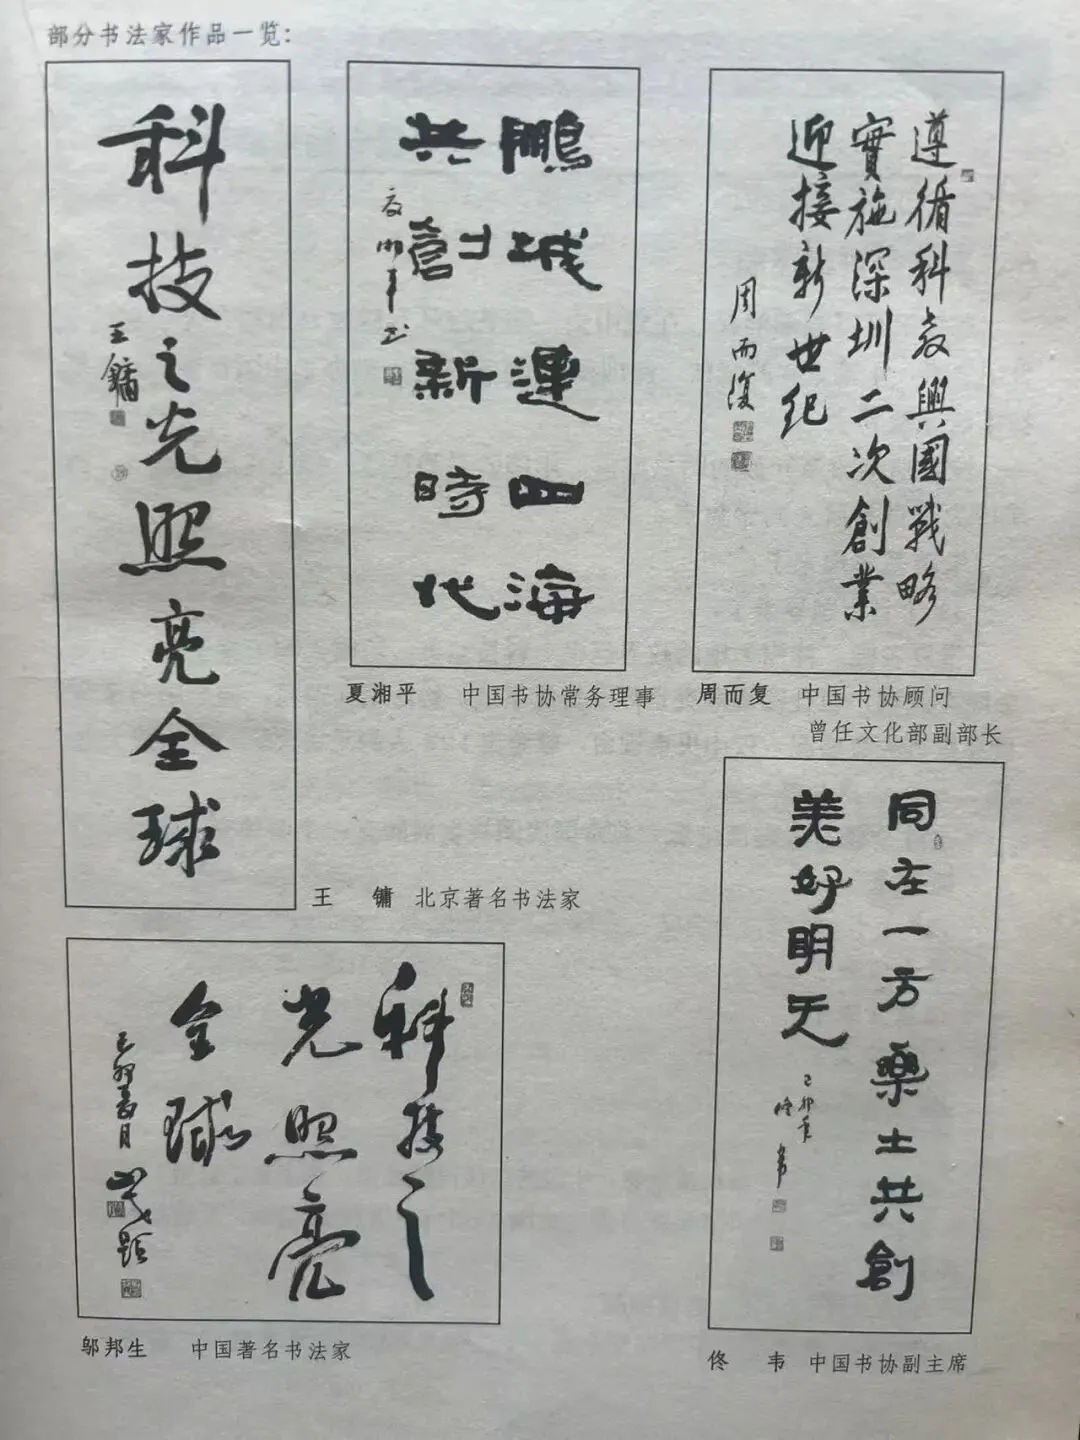 部分书法家作品一览:
科技之光照亮全球
王镛
王　镛　北京著名书法家
鵬城連四海
共創新時代
夏湘平书
夏湘平　中国书协常务理事
遵循科教興國戰略
實施深圳二次創業
迎接新世纪
周而復
周而复　中国书协顾问
曾任文化部副部长
科技之
光照亮
全球
己卯夏月
题
邬邦生　中国著名书法家
同在一方樂土共創
美好明天
己卯年
佟韦
佟　韦　中国书协副主席